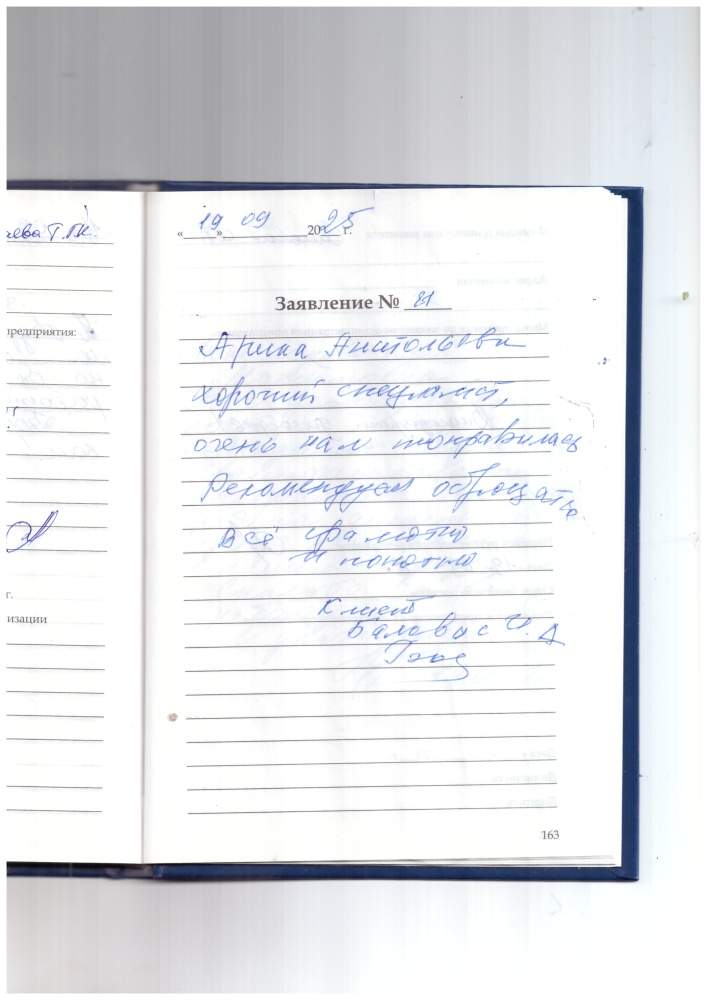 аева Т.М.
предприятия:
г.
изации
« 19 » 09 2025 г.
Заявление № 81
Арина Анатольевна
хороший специалист,
очень нам понравилась
Рекомендуем обращаться
Всё грамотно
и понятно
Клиент
163